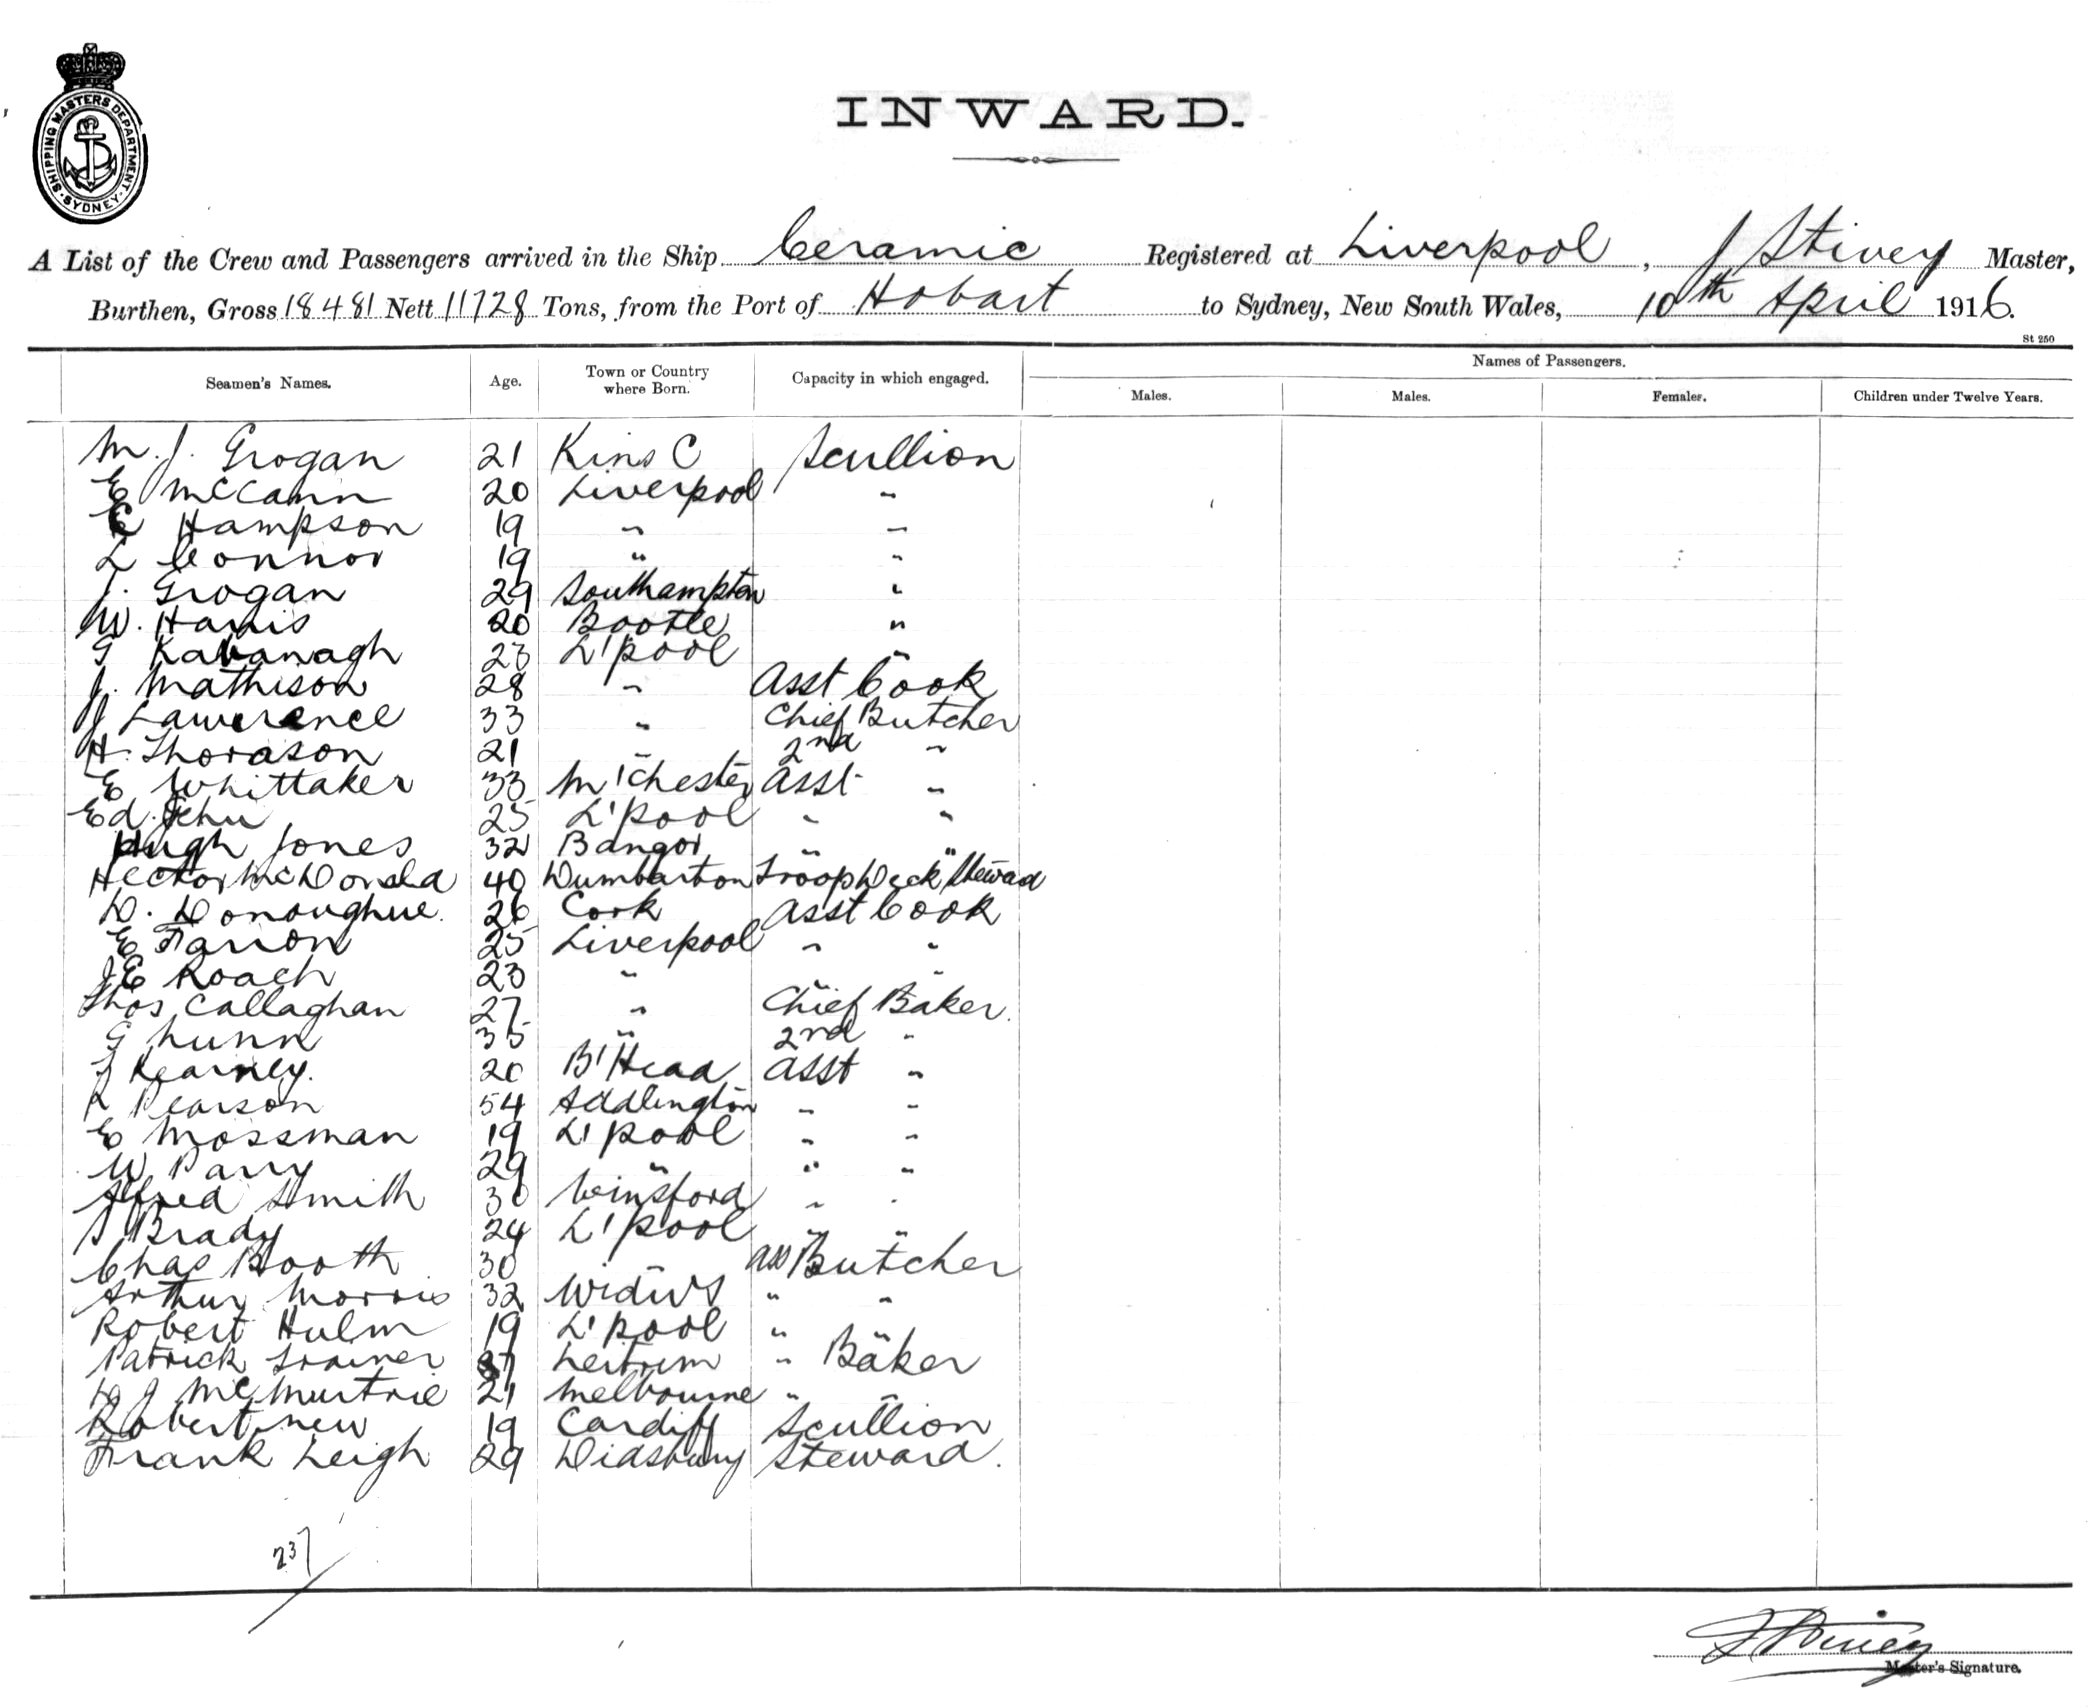 SHIPPING MASTERS DEPARTMENT · SYDNEY ·
INWARD.
A List of the Crew and Passengers arrived in the Ship Ceramic Registered at Liverpool, J Stivey Master,
Burthen, Gross 18481 Nett 11728 Tons, from the Port of Hobart to Sydney, New South Wales, 10th April 1916.
St 250
Seamen's Names. Age. Town or Country where Born. Capacity in which engaged. Names of Passengers.
Males. Males. Females. Children under Twelve Years.
M. J. Grogan 21 Kins C Scullion
E McCann 20 Liverpool "
E Hampson 19 " "
L Connor 19 " "
J. Grogan 29 Southampton "
W. Harris 20 Bootle "
G Kavanagh 23 L'pool "
J. Mathison 28 " Asst Cook
J Lawerence 33 " Chief Butcher
H. Thorason 21 " 2nd "
E Whittaker 33 M'chester Asst "
Ed. Jehu 25 L'pool " "
Hugh Jones 32 Bangor " "
Hector McDonald 40 Dumbarton Troop Deck Steward
D. Donoughue. 26 Cork Asst Cook
E Farron 25 Liverpool " "
J E Roach 23 " " "
Thos Callaghan 27 " Chief Baker.
G Lunn 35 " 2nd "
Kearney. 20 B'Head Asst "
R Pearson 54 Addlington " "
E Mossman 19 L'pool " "
W. Parry 29 " " "
Alfred Smith 30 Winsford " "
Brady 24 L'pool " "
Chas Booth 30 " Ass Butcher
Arthur Morris 32 Widn's " "
Robert Hulm 19 L'pool " "
Patrick Trainer 37 Leitrim " Baker
D J McMurtrie 21 Melbourne " "
Robert New 19 Cardiff Scullion
Frank Leigh 29 Didsbury Steward.
237
J Stivey
Master's Signature.